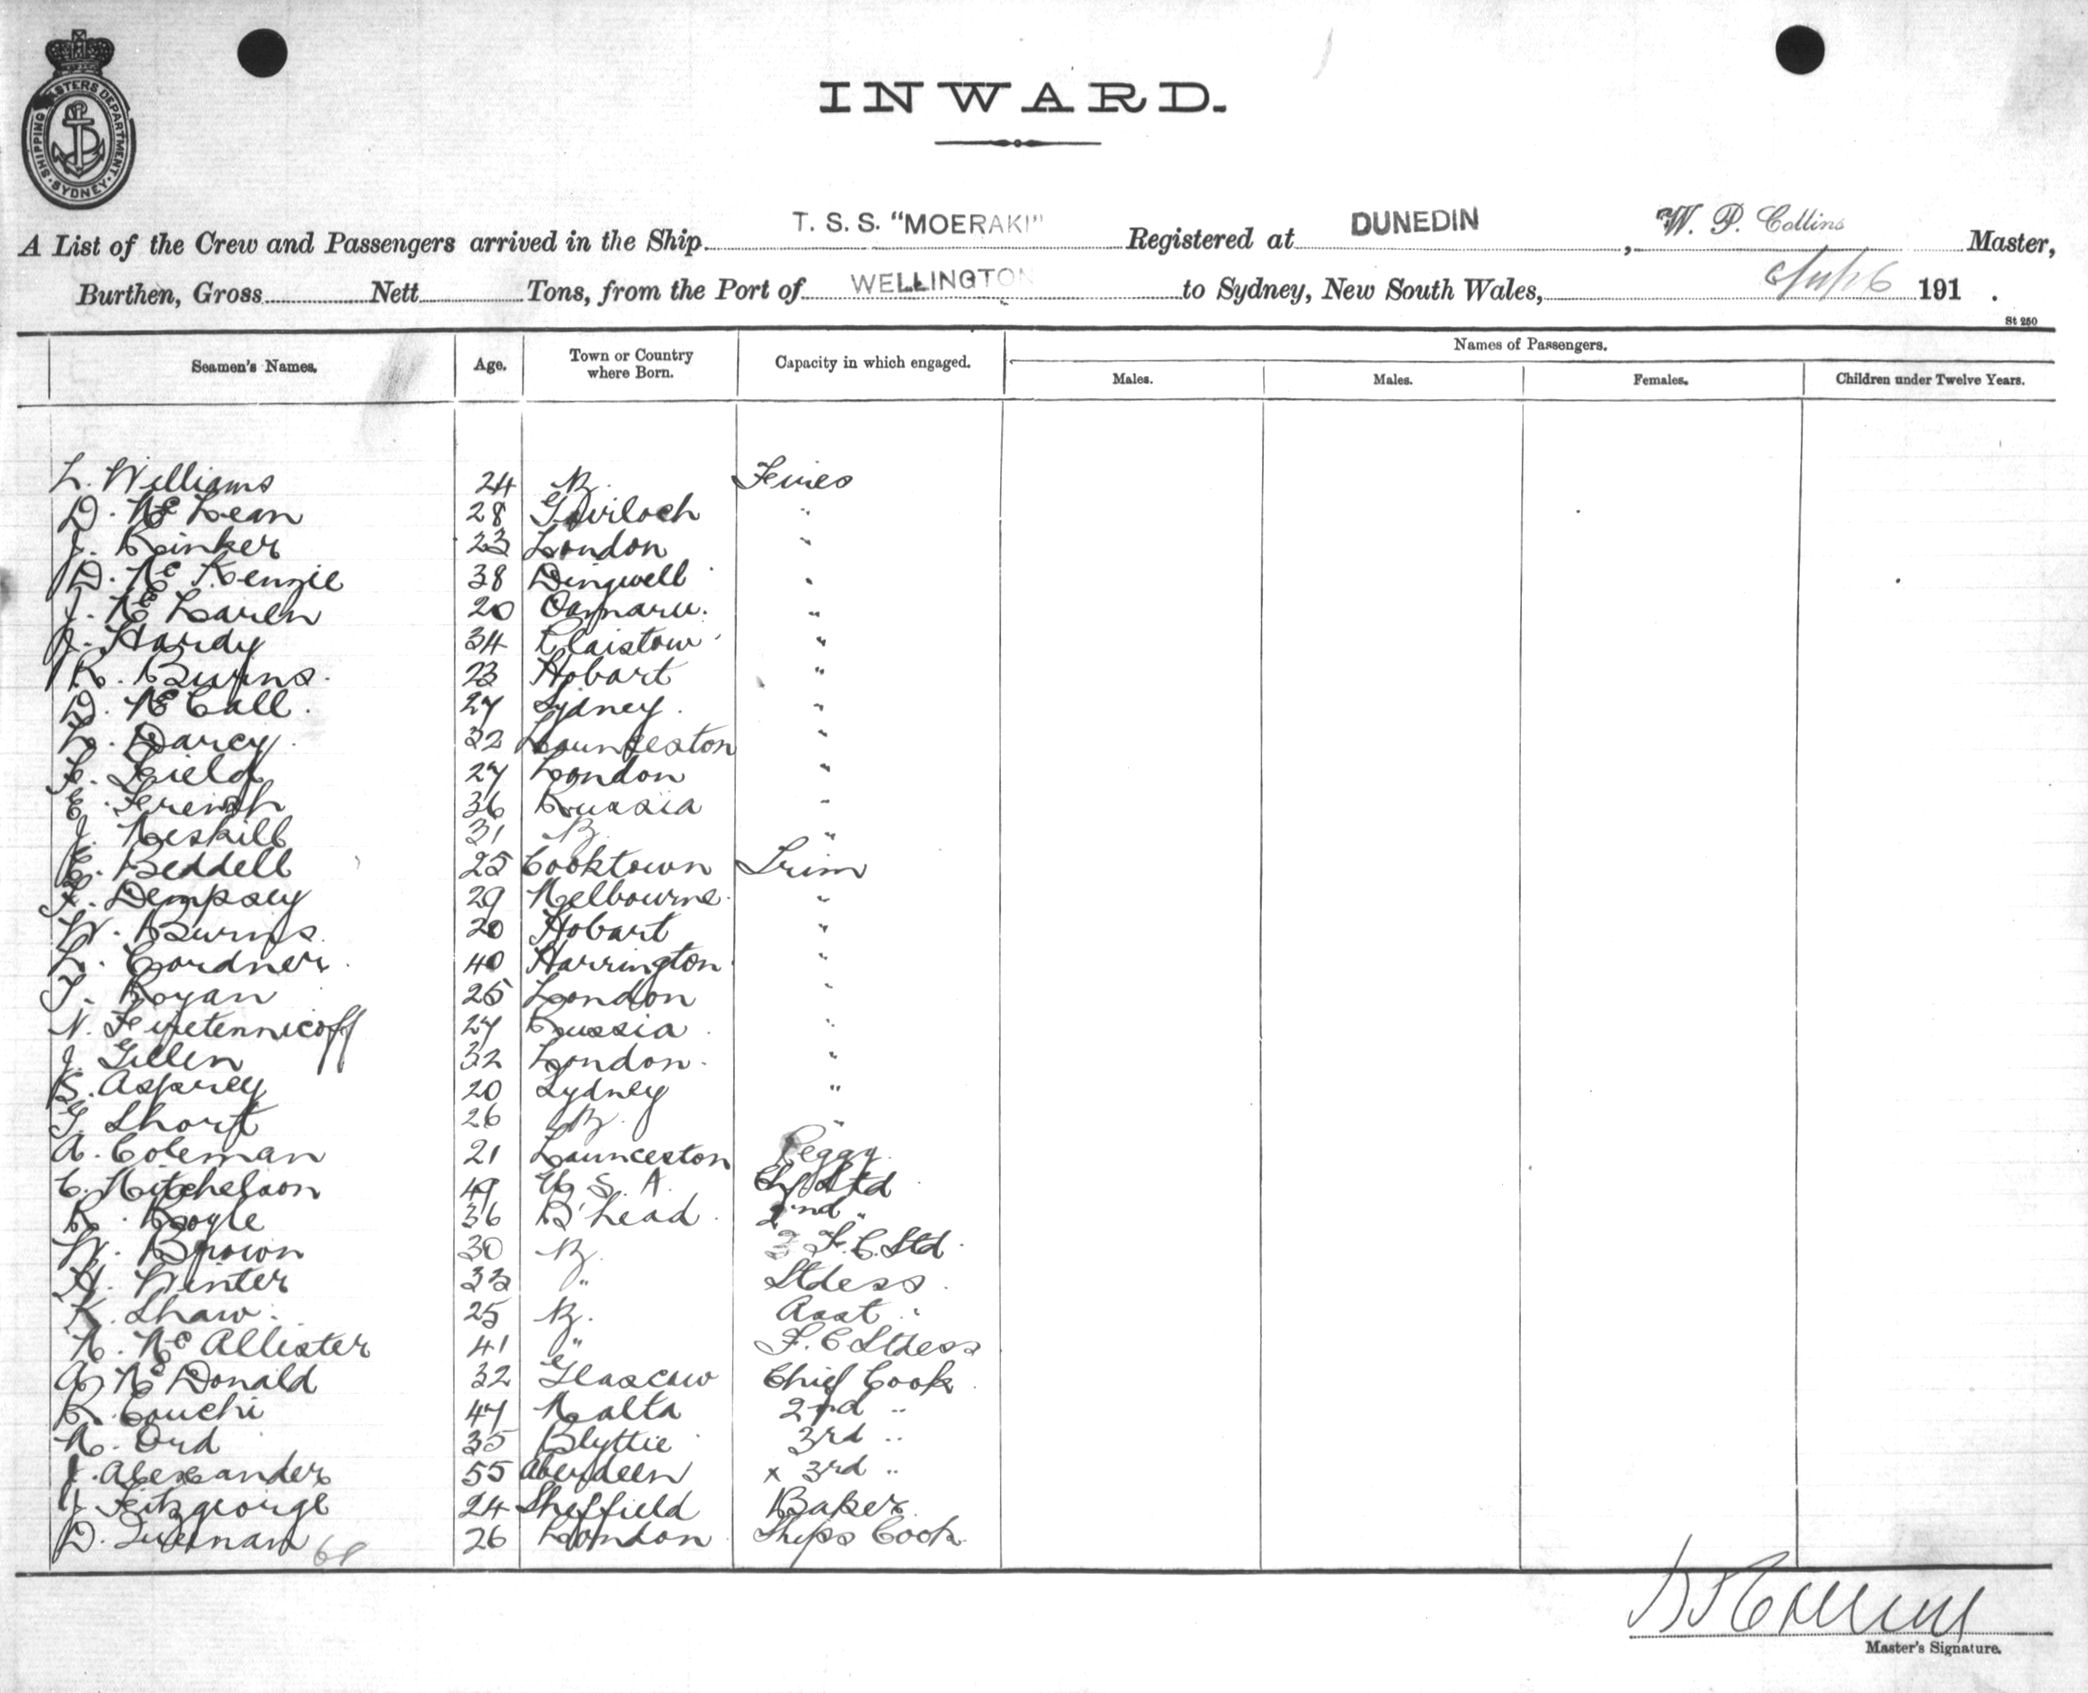 SHIPPING MASTERS DEPARTMENT. SYDNEY.
INWARD.
A List of the Crew and Passengers arrived in the Ship T. S. S. "MOERAKI" Registered at DUNEDIN, W. P. Collins Master,
Burthen, Gross Nett Tons, from the Port of WELLINGTON to Sydney, New South Wales, 191 .
St 250
Seamen's Names. Age. Town or Country where Born. Capacity in which engaged. Names of Passengers.
Males. Males. Females. Children under Twelve Years.
L. Williams 24 B.
D. McLean 28
J. Rinker 23 London "
D. McKenzie 38 Dingwell "
J. McLaren 20 Oamaru. "
J. Hardy 34 Plaistow "
R. Burns. 23 Hobart "
D. McCall. 27 Sydney. "
L. Darcy. 32 Launceston "
F. Field 27 London "
E. French 36 Russia "
J. Meskill 31 B. "
E. Beddell 25 Cooktown Trim
F. Dempsey 29 Melbourne. "
W. Burns. 20 Hobart "
L. Cordner. 40 Harrington "
T. Ryan 25 London "
N. 27 Russia. "
J. Gillen 32 London. "
B. Asprey 20 Sydney "
G. Short 26 B. "
A. Coleman 21 Launceston Peggy.
C. Mitchelson 49 U. S. A. Ch Std
R. Boyle 36 B'head. 2nd "
W. Brown 30 B. 3 F. C. Std.
H. Winter 33 " Stdess.
K. Shaw. 25 B. Asst "
M. McAllister 41 " F. C Stdess
A. McDonald 32 Glascow Chief Cook.
R. Couchi 47 Malta 2nd "
M. Ord 35 Blyttie 3rd "
J. Alexander 55 Aberdeen x 3rd "
J Fitzgeorge 24 Sheffield Baker.
D. 26 London Ships Cook.
68
Master's Signature.